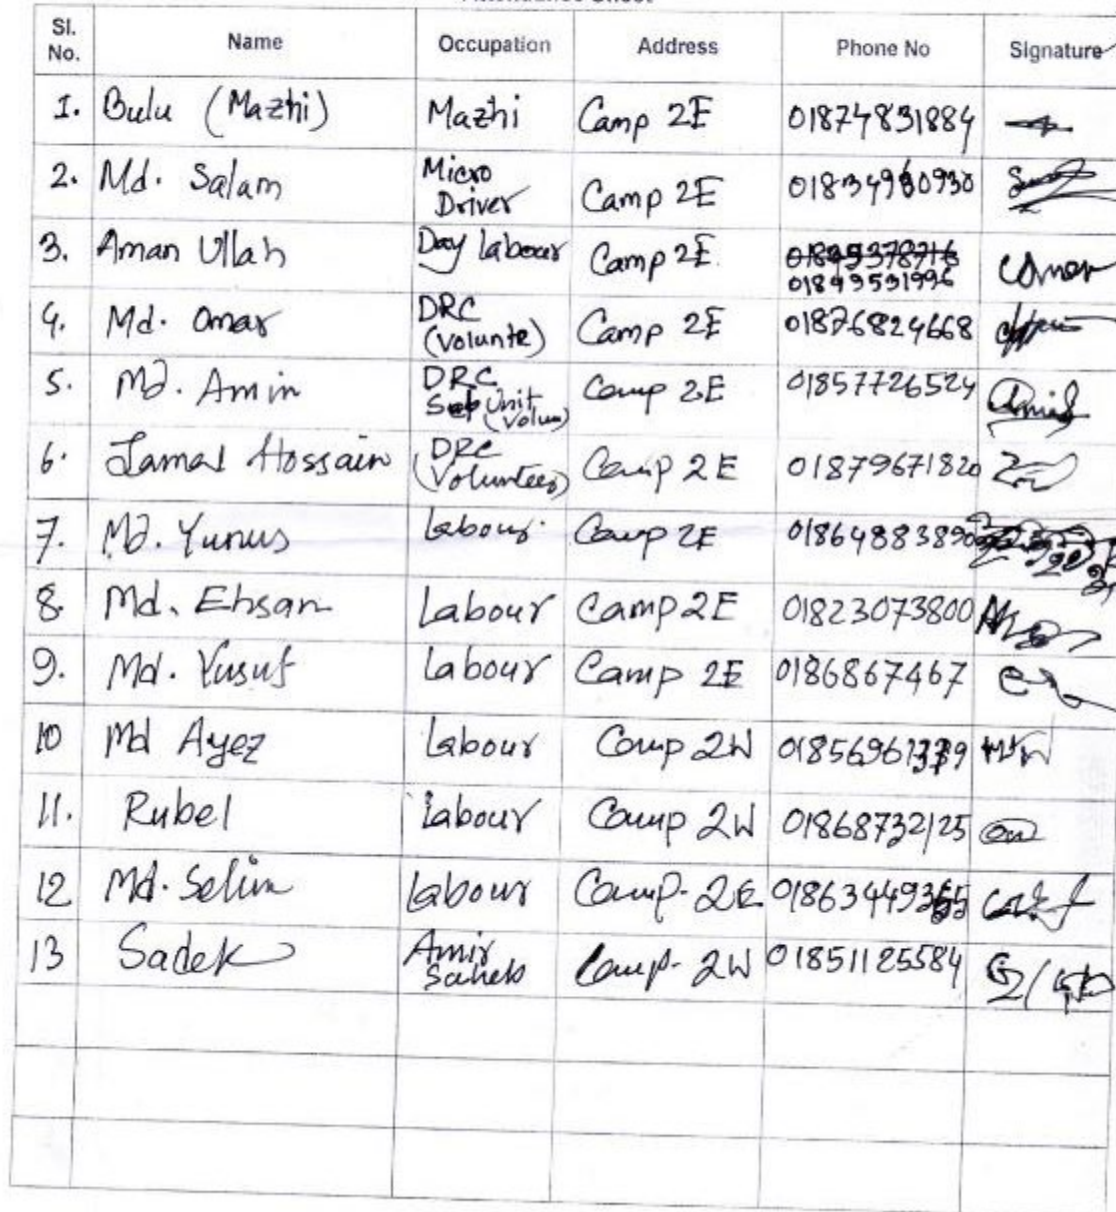 Sl. No. Name Occupation Address Phone No Signature
1. Bulu (Mazhi) Mazhi Camp 2E 01874831884
2. Md. Salam Micro Driver Camp 2E
3. Aman Ullah Day labour Camp 2E. 01849591996
4. Md. Omar DRC (Volunte) Camp 2E 01876824668
5. Md. Amin DRC Unit (Volun) Camp 2E 01857726524
6. Jamal Hossain DRC (Volunteer) Camp 2E 01879671820
7. Md. Yunus Labour. Camp 2E 01864883890
8. Md. Ehsan Labour Camp 2E 01823073800
9. Md. Yusuf Labour Camp 2E 0186867467
10 Md Ayez Labour Camp 2W
11. Rubel Labour Camp 2W 01868732125
12 Md. Selim Labour Camp-2E
13 Sadek Amir Saheb Camp-2W 01851125584